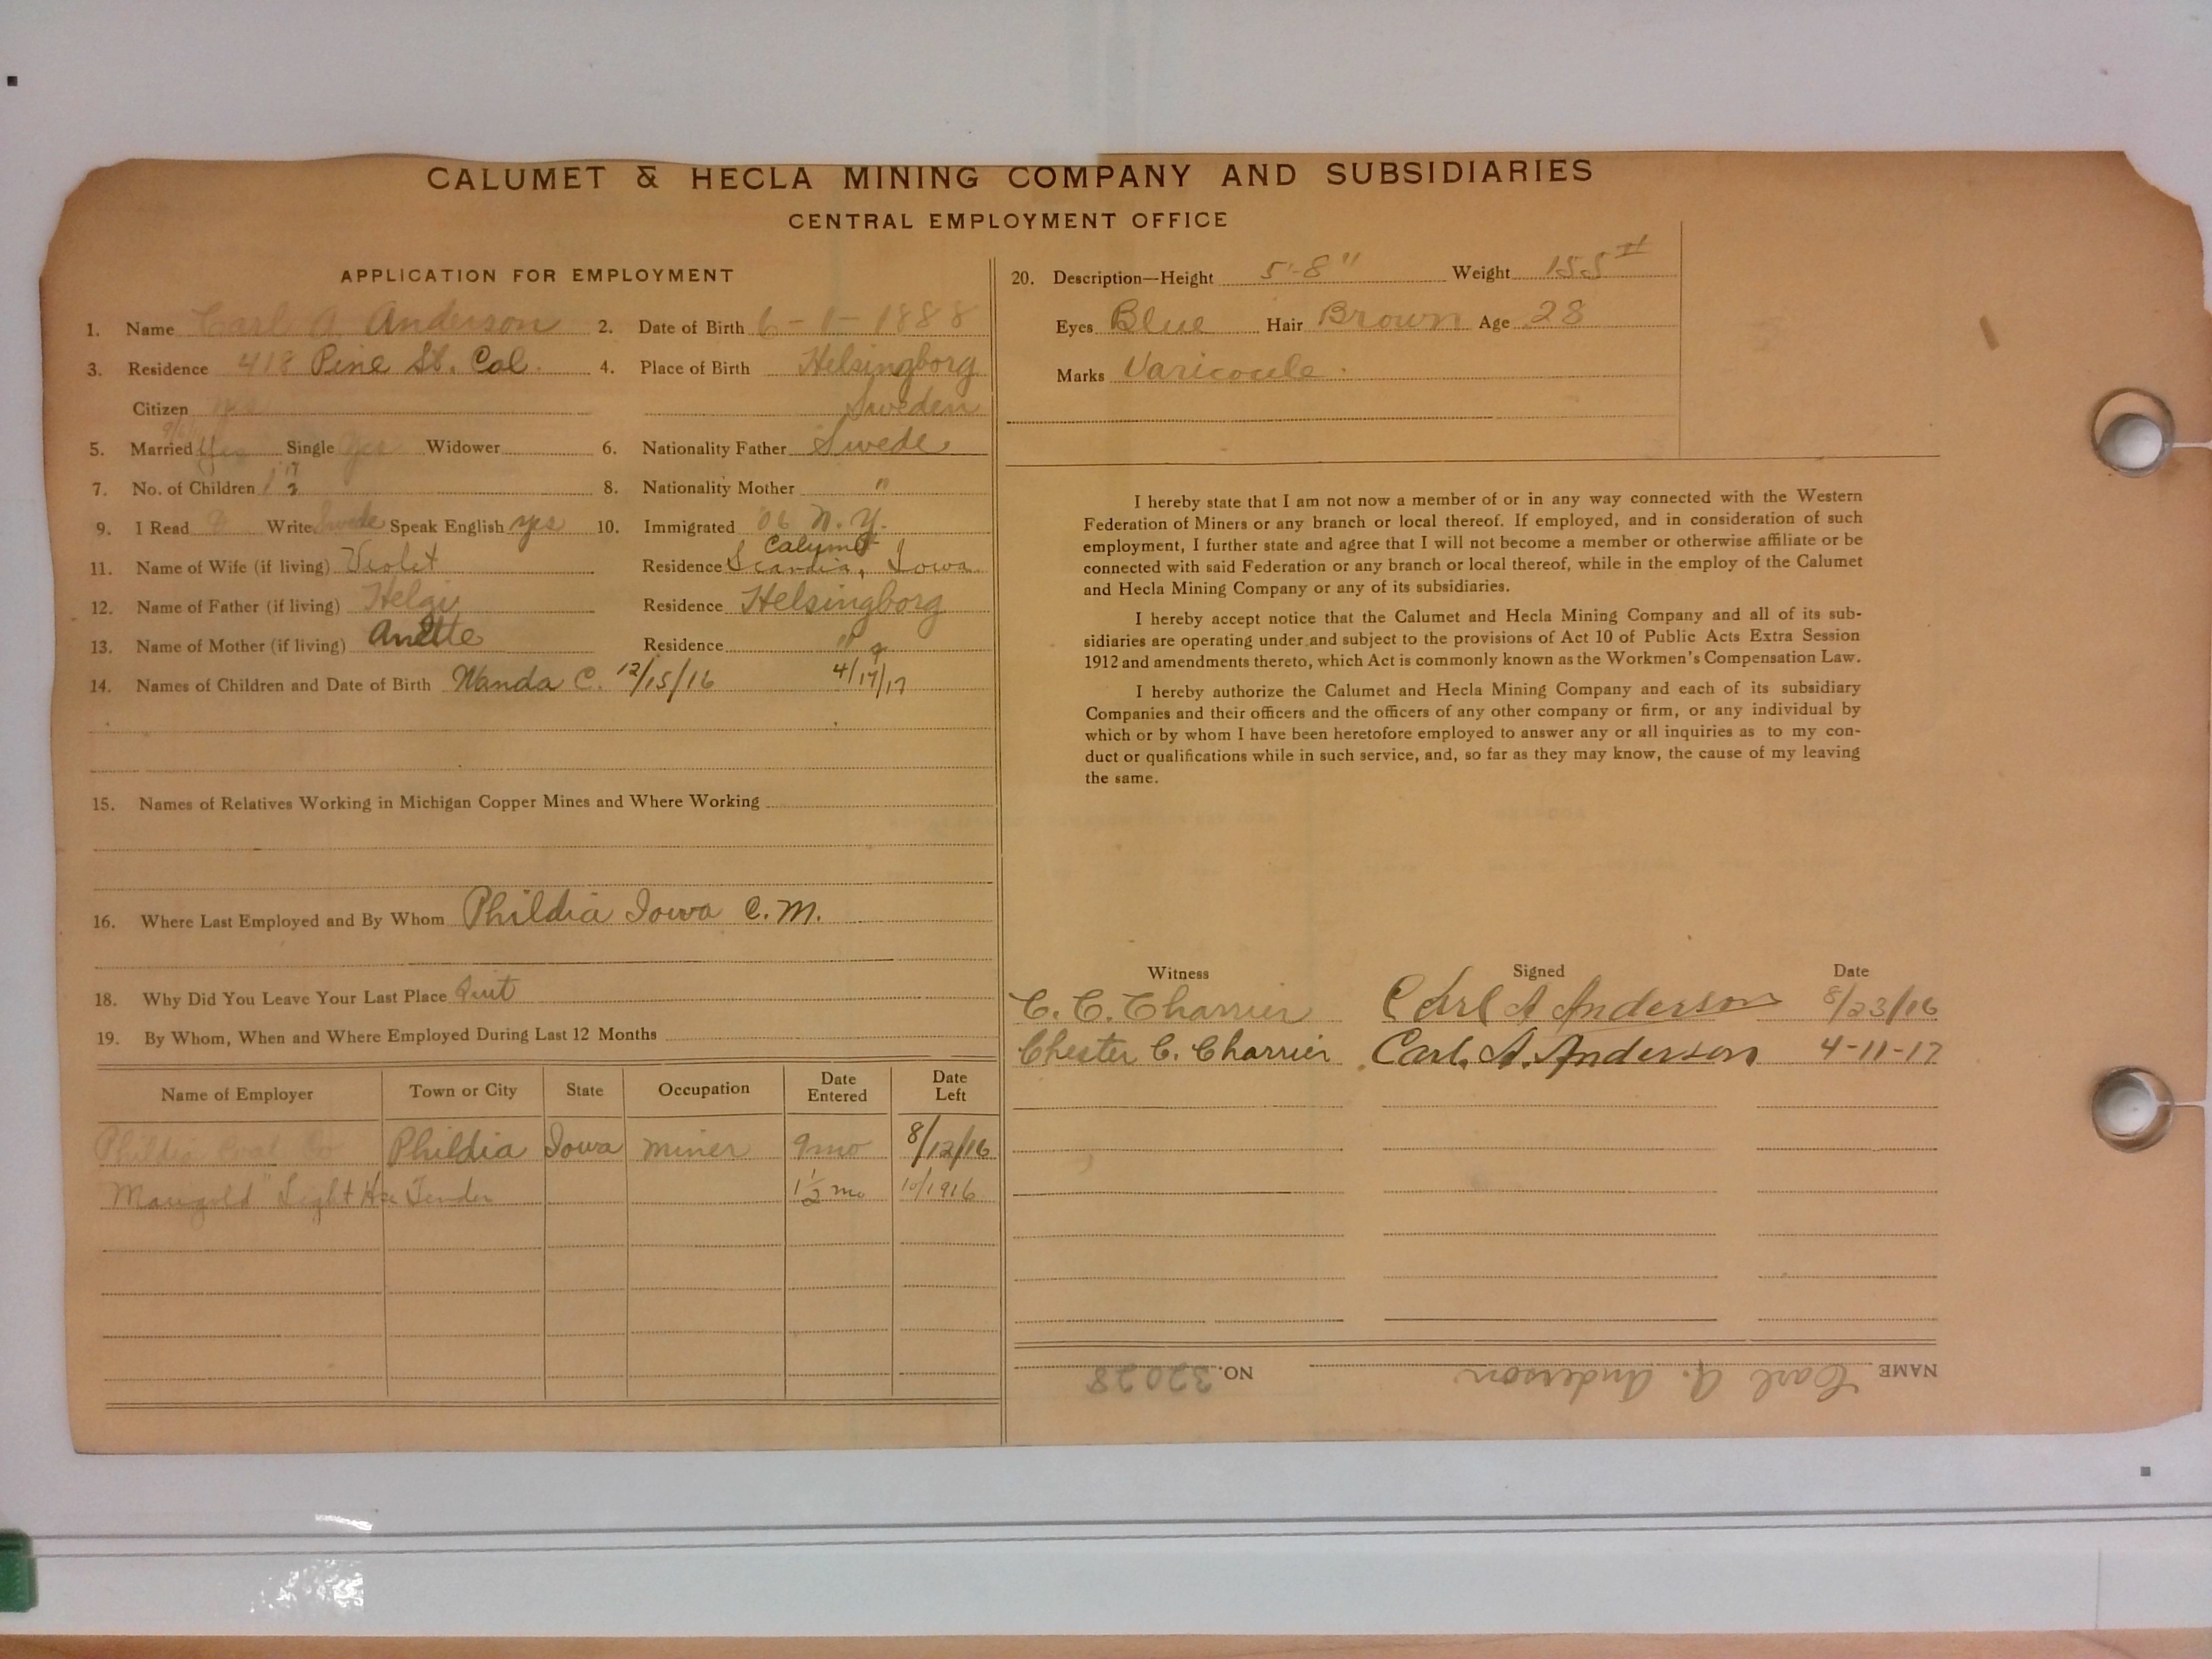 CALUMET & HECLA MINING COMPANY AND SUBSIDIARIES
CENTRAL EMPLOYMENT OFFICE
APPLICATION FOR EMPLOYMENT
1. Name Carl A. Anderson 2. Date of Birth 6-1-1888
3. Residence 418 Pine St. Cal. 4. Place of Birth Helsingborg
Citizen yes Sweden
5. Married Yes Single yes Widower 6. Nationality Father Swede
7. No. of Children 1 8. Nationality Mother "
9. I Read Write Swede Speak English yes 10. Immigrated '06 N.Y.
Calumet
11. Name of Wife (if living) Violet Residence Scandia, Iowa
12. Name of Father (if living) Helgi Residence Helsingborg
13. Name of Mother (if living) Anette Residence "
14. Names of Children and Date of Birth Wanda C. 12/15/16 4/17/17
15. Names of Relatives Working in Michigan Copper Mines and Where Working
16. Where Last Employed and By Whom Phildia Iowa C.M.
18. Why Did You Leave Your Last Place Quit
19. By Whom, When and Where Employed During Last 12 Months
Name of Employer Town or City State Occupation Date Entered Date Left
Phildia Coal Co Phildia Iowa miner 9 mo 8/12/16
Marigold" Light Hse Tender 1 1/2 mo 10/1916
20. Description—Height 5'-8" Weight 155 #
Eyes Blue Hair Brown Age 28
Marks Varicocele.
I hereby state that I am not now a member of or in any way connected with the Western
Federation of Miners or any branch or local thereof. If employed, and in consideration of such
employment, I further state and agree that I will not become a member or otherwise affiliate or be
connected with said Federation or any branch or local thereof, while in the employ of the Calumet
and Hecla Mining Company or any of its subsidiaries.
I hereby accept notice that the Calumet and Hecla Mining Company and all of its sub-
sidiaries are operating under and subject to the provisions of Act 10 of Public Acts Extra Session
1912 and amendments thereto, which Act is commonly known as the Workmen's Compensation Law.
I hereby authorize the Calumet and Hecla Mining Company and each of its subsidiary
Companies and their officers and the officers of any other company or firm, or any individual by
which or by whom I have been heretofore employed to answer any or all inquiries as to my con-
duct or qualifications while in such service, and, so far as they may know, the cause of my leaving
the same.
Witness Signed Date
C. C. Charrier Carl A Anderson 8/23/16
Chester C. Charrier Carl. A. Anderson 4-11-17
NAME Carl A. Anderson NO. 32028